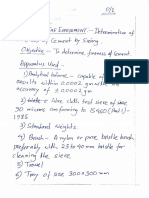 EXPERIMENT - Determination of
of Cement by Sieving
Objective - To determine fineness of Cement.
Apparatus Used -
1) Analytical balance - capable of
results within 0.0002 gm with an
accuracy of ± 0.0002 gm
2) cloth test sieve of size
90 microns conforming to IS 460 (Part 1) -
1985
3) Standard Weights
4) Brush - A nylon or pure bristle brush
preferably with 25 to 40 mm bristle for
cleaning the sieve
5) Trowel
6) Tray of size 300x300 mm